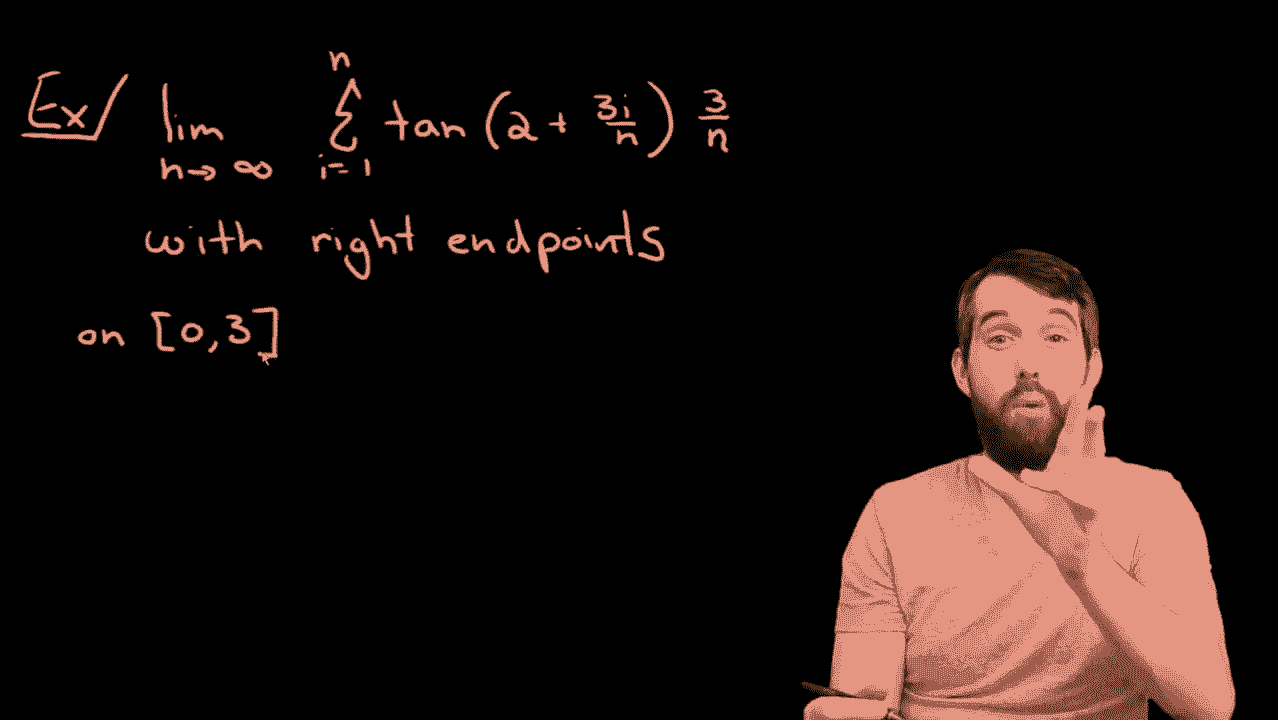 Ex/ lim n→∞ n Σ i=1 tan (2 + 3i/n) 3/n
with right endpoints
on [0,3]